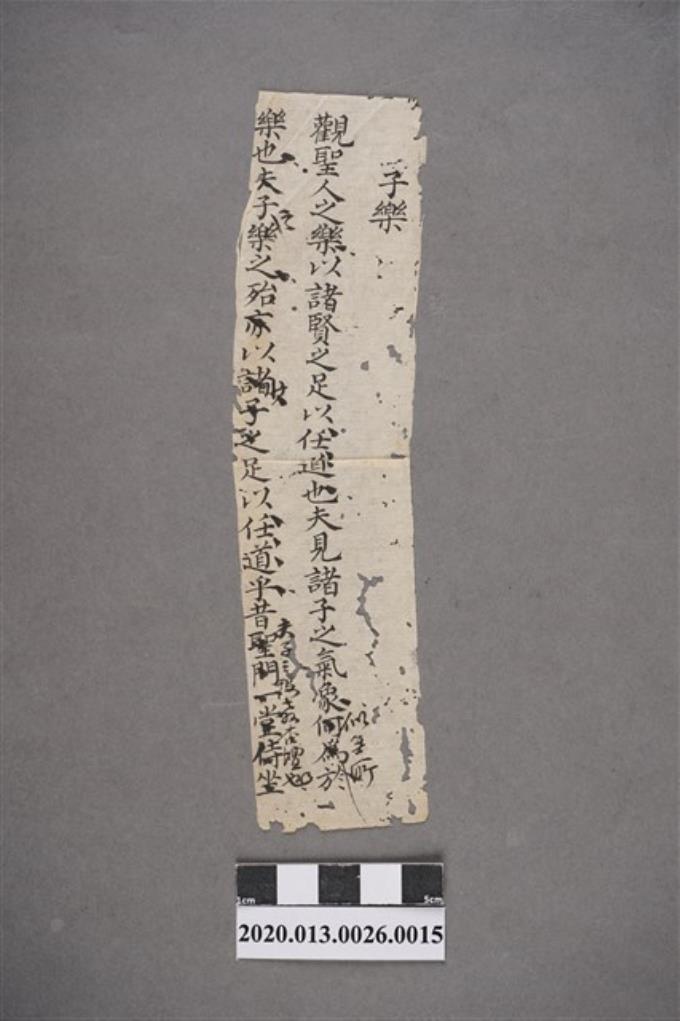 子樂
觀聖人之樂以諸賢之足以任道也夫見諸子之氣象何為於
似無所
樂也夫子樂之殆亦以諸子之足以任道乎昔聖門一堂侍坐
夫子之設教杏壇也
1cm 5cm
2020.013.0026.0015